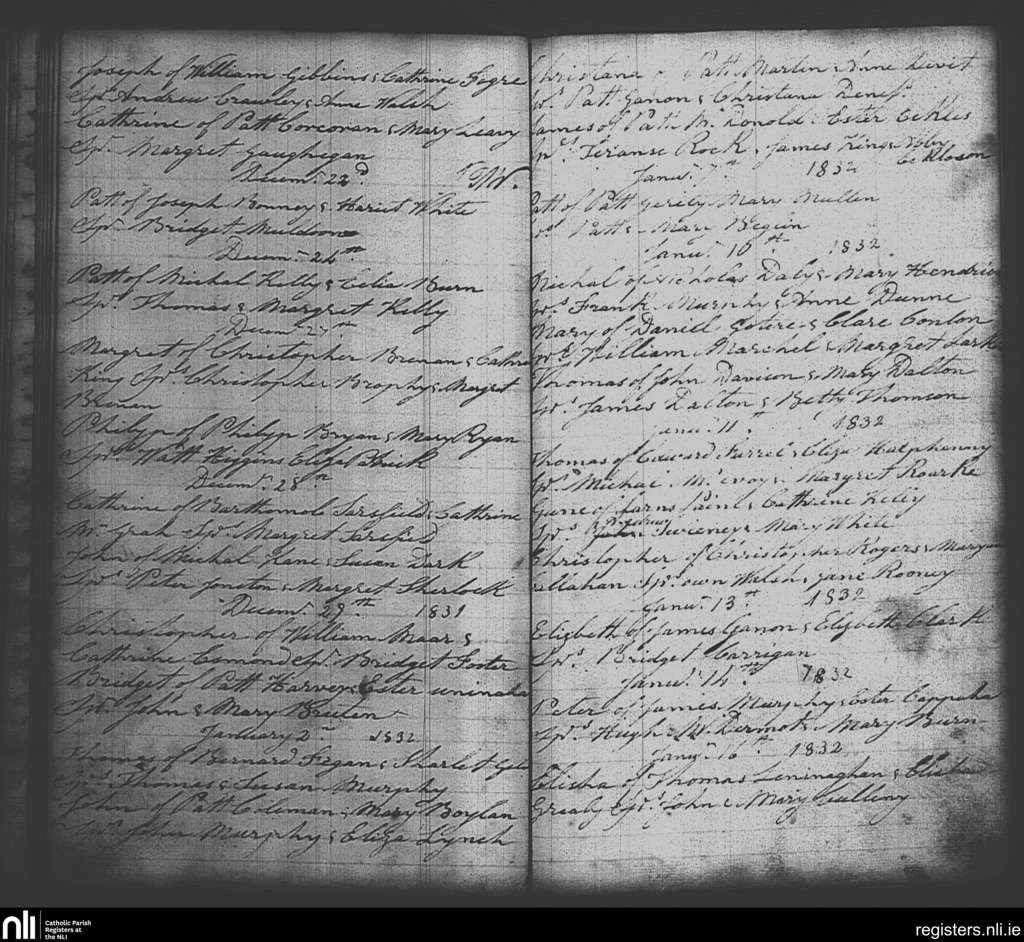 Joseph of William Gibbins & Cathrine Fogre
Spr. Andrew Crawley & Anne Walsh
Cathrine of Patt Corcoran & Mary Leavy
Spr. Margret Gaughegan
Decem. 22d
Patt of Joseph Bonney & Hariet White
Spr. Bridget Muldoon
Decem. 24th
Patt of Michal Kelly & Celia Burn
Sprs. Thomas & Margret Kelly
Decem. 27th
Margret of Christopher Brenan & Cathrine
King Sprs. Christopher Brophy & Margret
Brenan
Philyp of Philyp Bryan & Mary Ryan
Sprs. Watt Higgins Eliza Patrick
Decem. 28th
Cathrine of Barthomole Sarsfield & Cathrine
Mc Grah Sprs. Margret Sarsfield
John of Michal Kane & Susan Dark
Sprs. Peter & Margret Sherlock
Decem. 29th 1831
Christopher of William Maar &
Cathrine Esmond Spr. Bridget Foster
Bridget of Patt Harvey & Ester
Sprs. John & Mary Bruten
January 2nd 1832
Thomas of Bernard Fegan & Sharlet
Sprs. Thomas & Susan Murphy
John of Patt Coleman & Mary Boylan
Sprs. John Murphy & Eliza Lynch
Christana of Patt Martin & Anne Devit
Sprs. Patt Ganon & Christana
James of Patt Mc Donold & Ester Eckles
Sprs. Teranse Rock. James King &
Janu. 7th 1832
Patt of Patt Gerity Mary Mullen
Sprs. Patt & Mary Begun
Janu. 10th 1832
Michal of Nicholas Daly & Mary Hendrick
Sprs. Frank Murphy & Anne Dunne
Mary of Daniel & Clare Conlon
Sprs. William Marchel & Margret
Thomas of John Davison & Mary Dalton
Sprs. James Dalton & Betty Thomson
Janu. 11th 1832
Thomas of Edward Farrel & Eliza Halphenny
Sprs. Michal Mc evoy & Margret Roarke
of & Cathrine Kelly
Sprs. Sweeney & Mary White
Christopher of Christopher Rogers & Mary
Callahan Sprs. own Walsh & Jane Rooney
Janu. 13th 1832
Elizbeth of James Ganon & Elizbeth Clark
Sprs. Bridget Carrigan
Janu. 14th 1832
Peter of James Murphy & Ester
Sprs. Hugh Mc Dermot & Mary Burn
Janu. 16th 1832
Elisba of Thomas Leninaghan & Elisba
Grealy Sprs. John & Mary
nli
Catholic Parish
Registers at
the NLI
registers.nli.ie